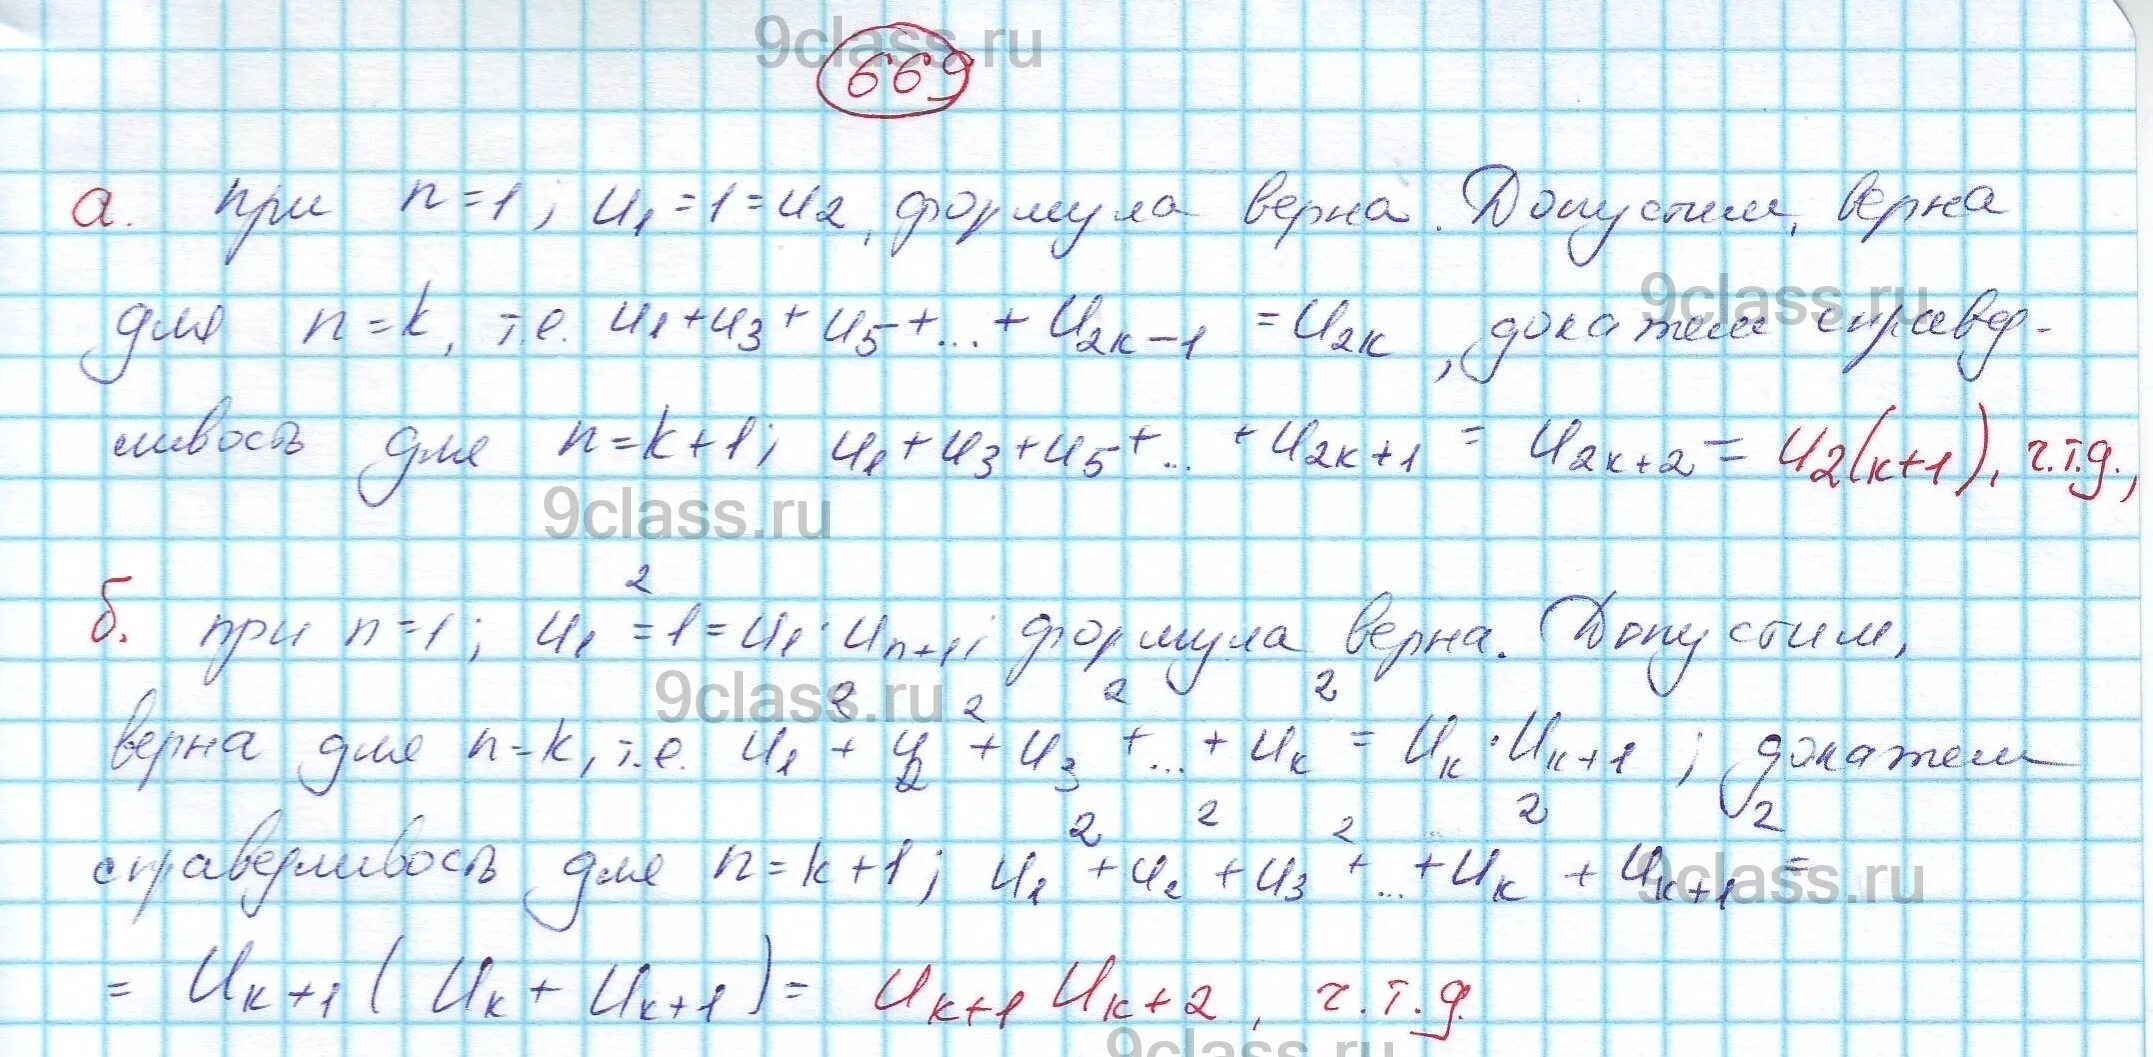 9class.ru
669
а. при n=1; u₁=1=u₂, формула верна. Допустим, верна
для n=k, т.е. u₁+u₃+u₅+...+u₂ₖ₋₁=u₂ₖ, докажем справед-
9class.ru
ливость для n=k+1; u₁+u₃+u₅+...+u₂ₖ₊₁=u₂ₖ₊₂=u₂₍ₖ₊₁₎, ч.т.д.,
9class.ru
б. при n=1; u₁²=1=u₁·uₙ₊₁; формула верна. Допустим,
9class.ru
верна для n=k, т.е. u₁²+u₂²+u₃²+...+uₖ²=uₖ·uₖ₊₁; докажем
справедливость для n=k+1; u₁²+u₂²+u₃²+...+uₖ²+uₖ₊₁²=
9class.ru
=uₖ₊₁(uₖ+uₖ₊₁)=uₖ₊₁uₖ₊₂, ч.т.д.
9class.ru